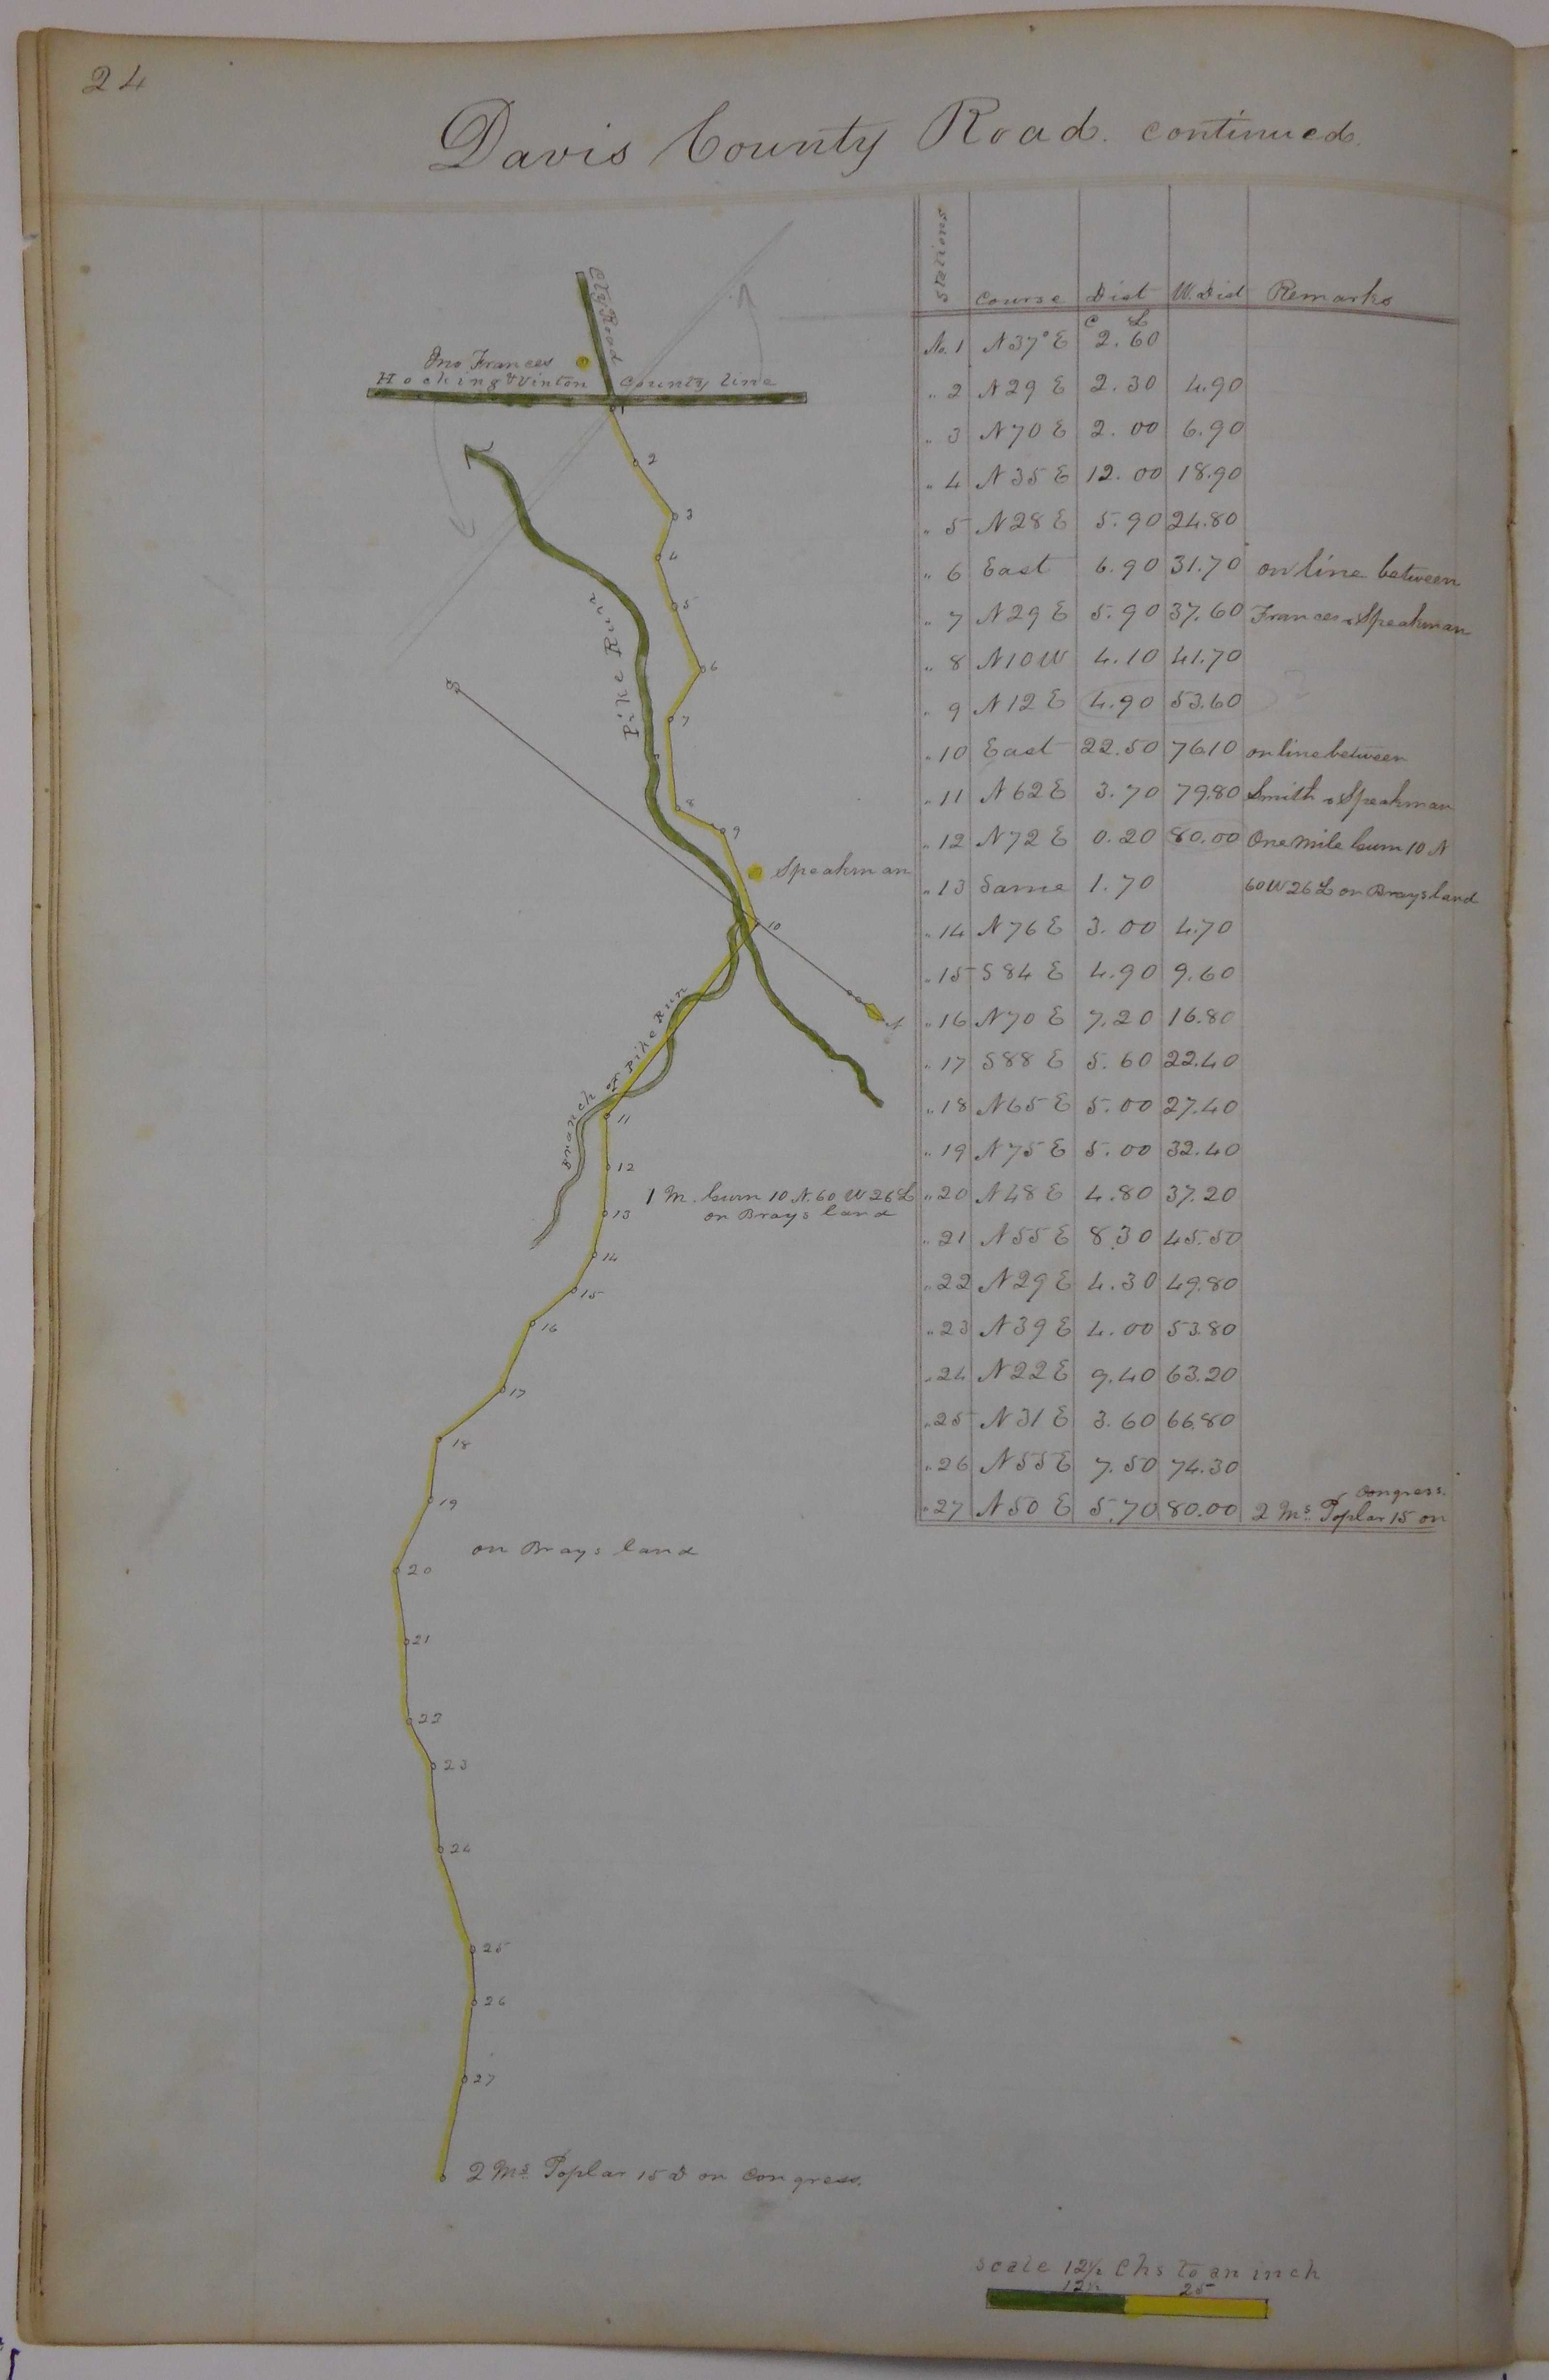 24
Davis County Road. continued.
Old Road
Jno Frances
Hocking & Vinton County line
1
2
3
4
5
6
7
8
9
10
11
12
13
14
15
16
17
18
19
20
21
22
23
24
25
26
27
Pike Run
S
Speakman
N
Branch of Pike Run
1 M. Gum 10 N. 60 W 26 L
on Brays land
on Brays land
2 Ms. Poplar 15 D on Congress.
Stations Course Dist W. Dist Remarks
C L
No. 1 N 37° E 2.60
" 2 N 29 E 2.30 4.90
" 3 N 70 E 2.00 6.90
" 4 N 35 E 12.00 18.90
" 5 N 28 E 5.90 24.80
" 6 East 6.90 31.70 on line between
" 7 N 29 E 5.90 37.60 Frances & Speakman
" 8 N 10 W 4.10 41.70
" 9 N 12 E 4.90 53.60 ?
" 10 East 22.50 76.10 on line between
" 11 N 62 E 3.70 79.80 Smith & Speakman
" 12 N 72 E 0.20 80.00 One Mile Gum 10 N
" 13 Same 1.70 60 W 26 L on Brays land
" 14 N 76 E 3.00 4.70
" 15 S 84 E 4.90 9.60
" 16 N 70 E 7.20 16.80
" 17 S 88 E 5.60 22.40
" 18 N 65 E 5.00 27.40
" 19 N 75 E 5.00 32.40
" 20 N 48 E 4.80 37.20
" 21 N 55 E 8.30 45.50
" 22 N 29 E 4.30 49.80
" 23 N 39 E 4.00 53.80
" 24 N 22 E 9.40 63.20
" 25 N 31 E 3.60 66.80
" 26 N 55 E 7.50 74.30
Congress.
" 27 N 50 E 5.70 80.00 2 Ms. Poplar 15 on
Scale 12½ Chs to an inch
12½ 25